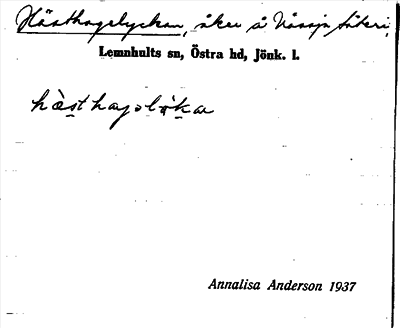 Hästhagelyckan, åker å Nässja säteri,
Lemnhults sn, Östra hd, Jönk. l.
hästhagslykan
Annalisa Anderson 1937